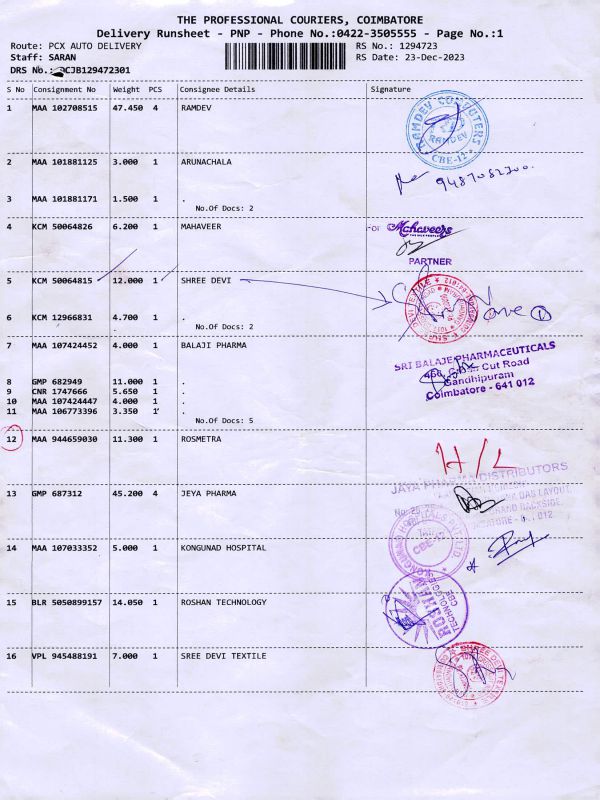 THE PROFESSIONAL COURIERS, COIMBATORE
Delivery Runsheet - PNP - Phone No.:0422-3505555 - Page No.:1
Route: PCX AUTO DELIVERY RS No.: 1294723
Staff: SARAN RS Date: 23-Dec-2023
DRS No.: CJB129472301
S No Consignment No Weight PCS Consignee Details Signature
1 MAA 102708515 47.450 4 RAMDEV
RAMDEV COMPUTERS
RAMDEV
CBE-12
2 MAA 101881125 3.000 1 ARUNACHALA
9487082300
3 MAA 101881171 1.500 1 .
No.Of Docs: 2
4 KCM 50064826 6.200 1 MAHAVEER
For Mahaveers
PARTNER
5 KCM 50064815 12.000 1 SHREE DEVI
6 KCM 12966831 4.700 1 .
No.Of Docs: 2
7 MAA 107424452 4.000 1 BALAJI PHARMA
SRI BALAJE PHARMACEUTICALS
Cut Road
Gandhipuram
Coimbatore - 641 012
8 GMP 682949 11.000 1 .
9 CNR 1747666 5.650 1 .
10 MAA 107424447 4.000 1 .
11 MAA 106773396 3.350 1 .
No.Of Docs: 5
12 MAA 944659030 11.300 1 ROSMETRA
H/L
13 GMP 687312 45.200 4 JEYA PHARMA
JAYA PHARMA DISTRIBUTORS
14 MAA 107033352 5.000 1 KONGUNAD HOSPITAL
KONGUNAD HOSPITALS PVT LTD
CBE-12
15 BLR 5050899157 14.050 1 ROSHAN TECHNOLOGY
ROSHAN
TECHNOLOGY
CBE
16 VPL 945488191 7.000 1 SREE DEVI TEXTILE
SHREE DEVI TEXTILE